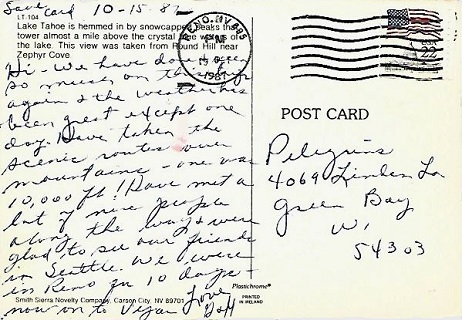 Save
card 10-15-87
LT-104
Lake Tahoe is hemmed in by snowcapped peaks that
tower almost a mile above the crystal waters of
the lake. This view was taken from Round Hill near
Zephyr Cove.
RENO, NV 895
PM
1987
USA
22
Hi - We have done & seen
so much on this trip
again & the weather has
been great except one
day. Have taken the
scenic routes over
mountains - one was
10,000 ft! Have met a
lot of nice people
along the way & were
glad to see our friends
in Seattle. We were
in Reno for 10 days &
now on to Vegas
Love
POST CARD
Pelegrins
4069 Linden Ln
Green Bay
WI
54303
Plastichrome®
PRINTED
IN IRELAND
Smith Sierra Novelty Company, Carson City, NV 89701